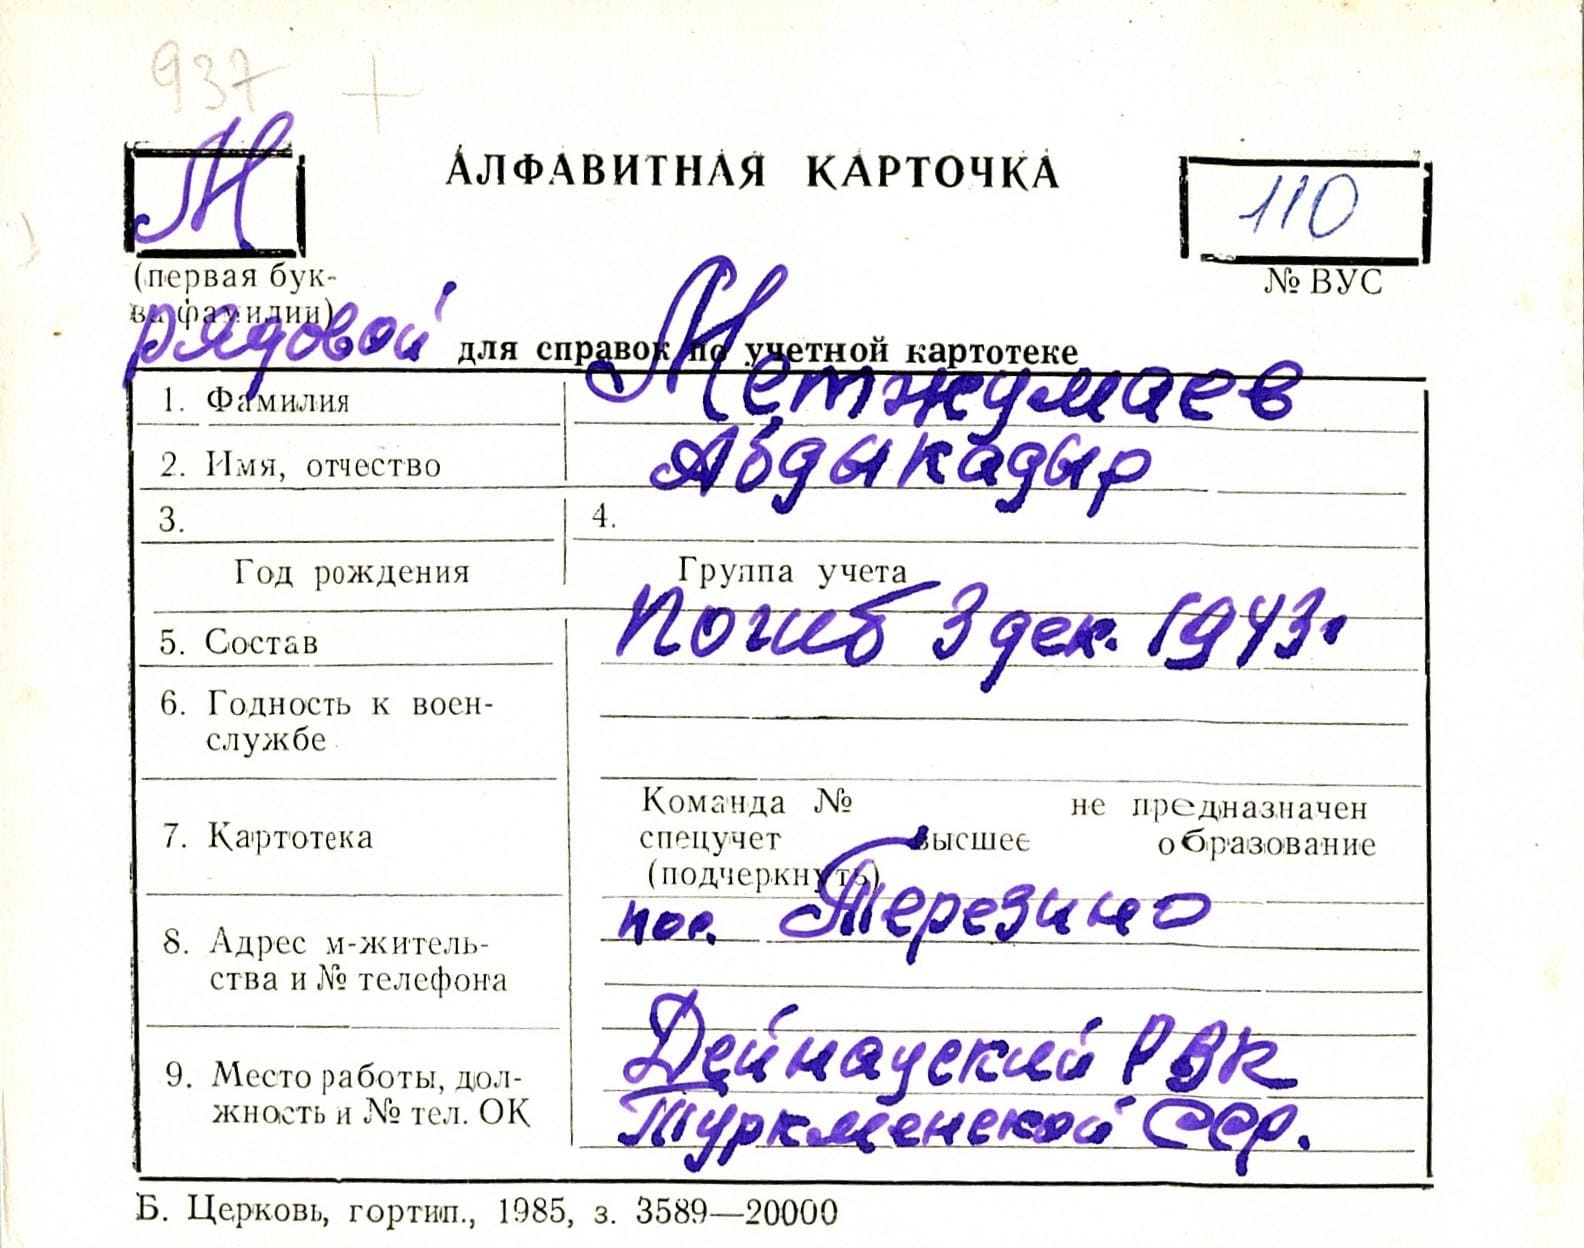 937 +
М АЛФАВИТНАЯ КАРТОЧКА 110
(первая бук-
ва фамилии) № ВУС
рядовой для справок по учетной картотеке
1. Фамилия Метжумаев
2. Имя, отчество Абдыкадыр
3. 4.
Год рождения Группа учета
5. Состав Погиб 3 дек. 1943г.
6. Годность к воен-
службе
Команда № не предназначен
7. Картотека спецучет высшее образование
(подчеркнуть)
пос. Терезино
8. Адрес м-житель-
ства и № телефона
Дейнауский РВК
9. Место работы, дол-
жность и № тел. ОК Туркменской ССР.
Б. Церковь, гортип., 1985, з. 3589—20000